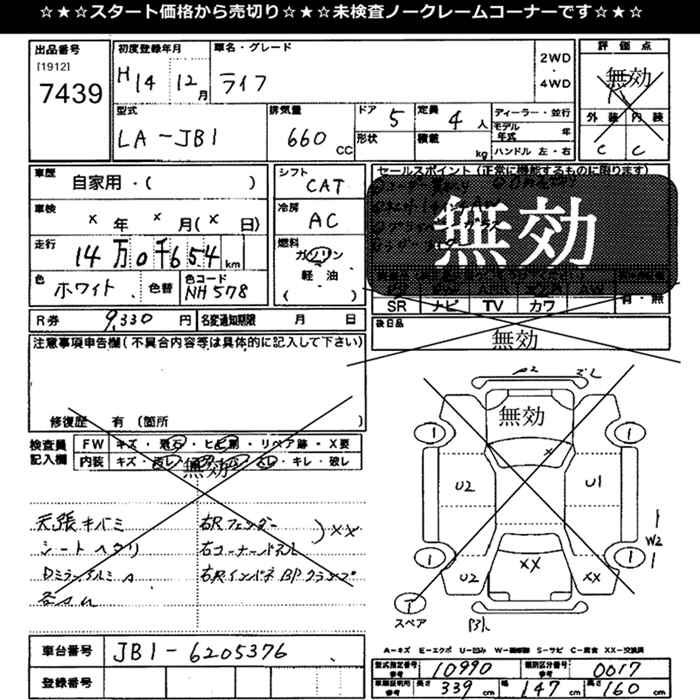 ☆★☆スタート価格から売切り☆★☆未検査ノークレームコーナーです☆★☆
出品番号 [1912] 7439
初度登録年月 H14 12月
車名・グレード ライフ
2WD ・ 4WD
評価点 無効
外装 内装
C C
型式 LA-JB1
排気量 660 CC
ドア 5 形状
定員 4人 積載 kg
ディーラー・並行
モデル年式 年
ハンドル 左・右
車歴 自家用・( )
車検 × 年 × 月(× 日)
走行 14万0千654km
色 ホワイト 色替 色コード NH578
シフト CAT
冷房 AC
燃料 ガソリン 軽・油 ( )
セールスポイント(正常に機能するものに限ります)
無効
SR ナビ TV カワ 有・無
R券 9,330円 名変通知期限 月 日
後日品 無効
注意事項申告欄(不具合内容等は具体的に記入して下さい)
修復歴 有 (箇所 )
検査員記入欄
FW キズ・飛石・ヒビ割・リペア跡・X要
内装 キズ・汚レ・コゲ・穴・スレ・キレ・破レ
無効
天張キバミ 右Rフェンダー ) XX
シートヘタリ 右コーナーパネル
右Rインパネ
無効
U2 U1
U2 XX XX
W2
1 1 1 1 1
スペア
A-キズ E-エクボ U-凹み W-補修跡 S-サビ C-腐食 XX-交換済
車台番号 JB1-6205376
登録番号
型式指定番号 参考 10990 類別区分番号 参考 0017
車検証明用 参考 長さ 339cm 幅 147cm 高さ 160cm